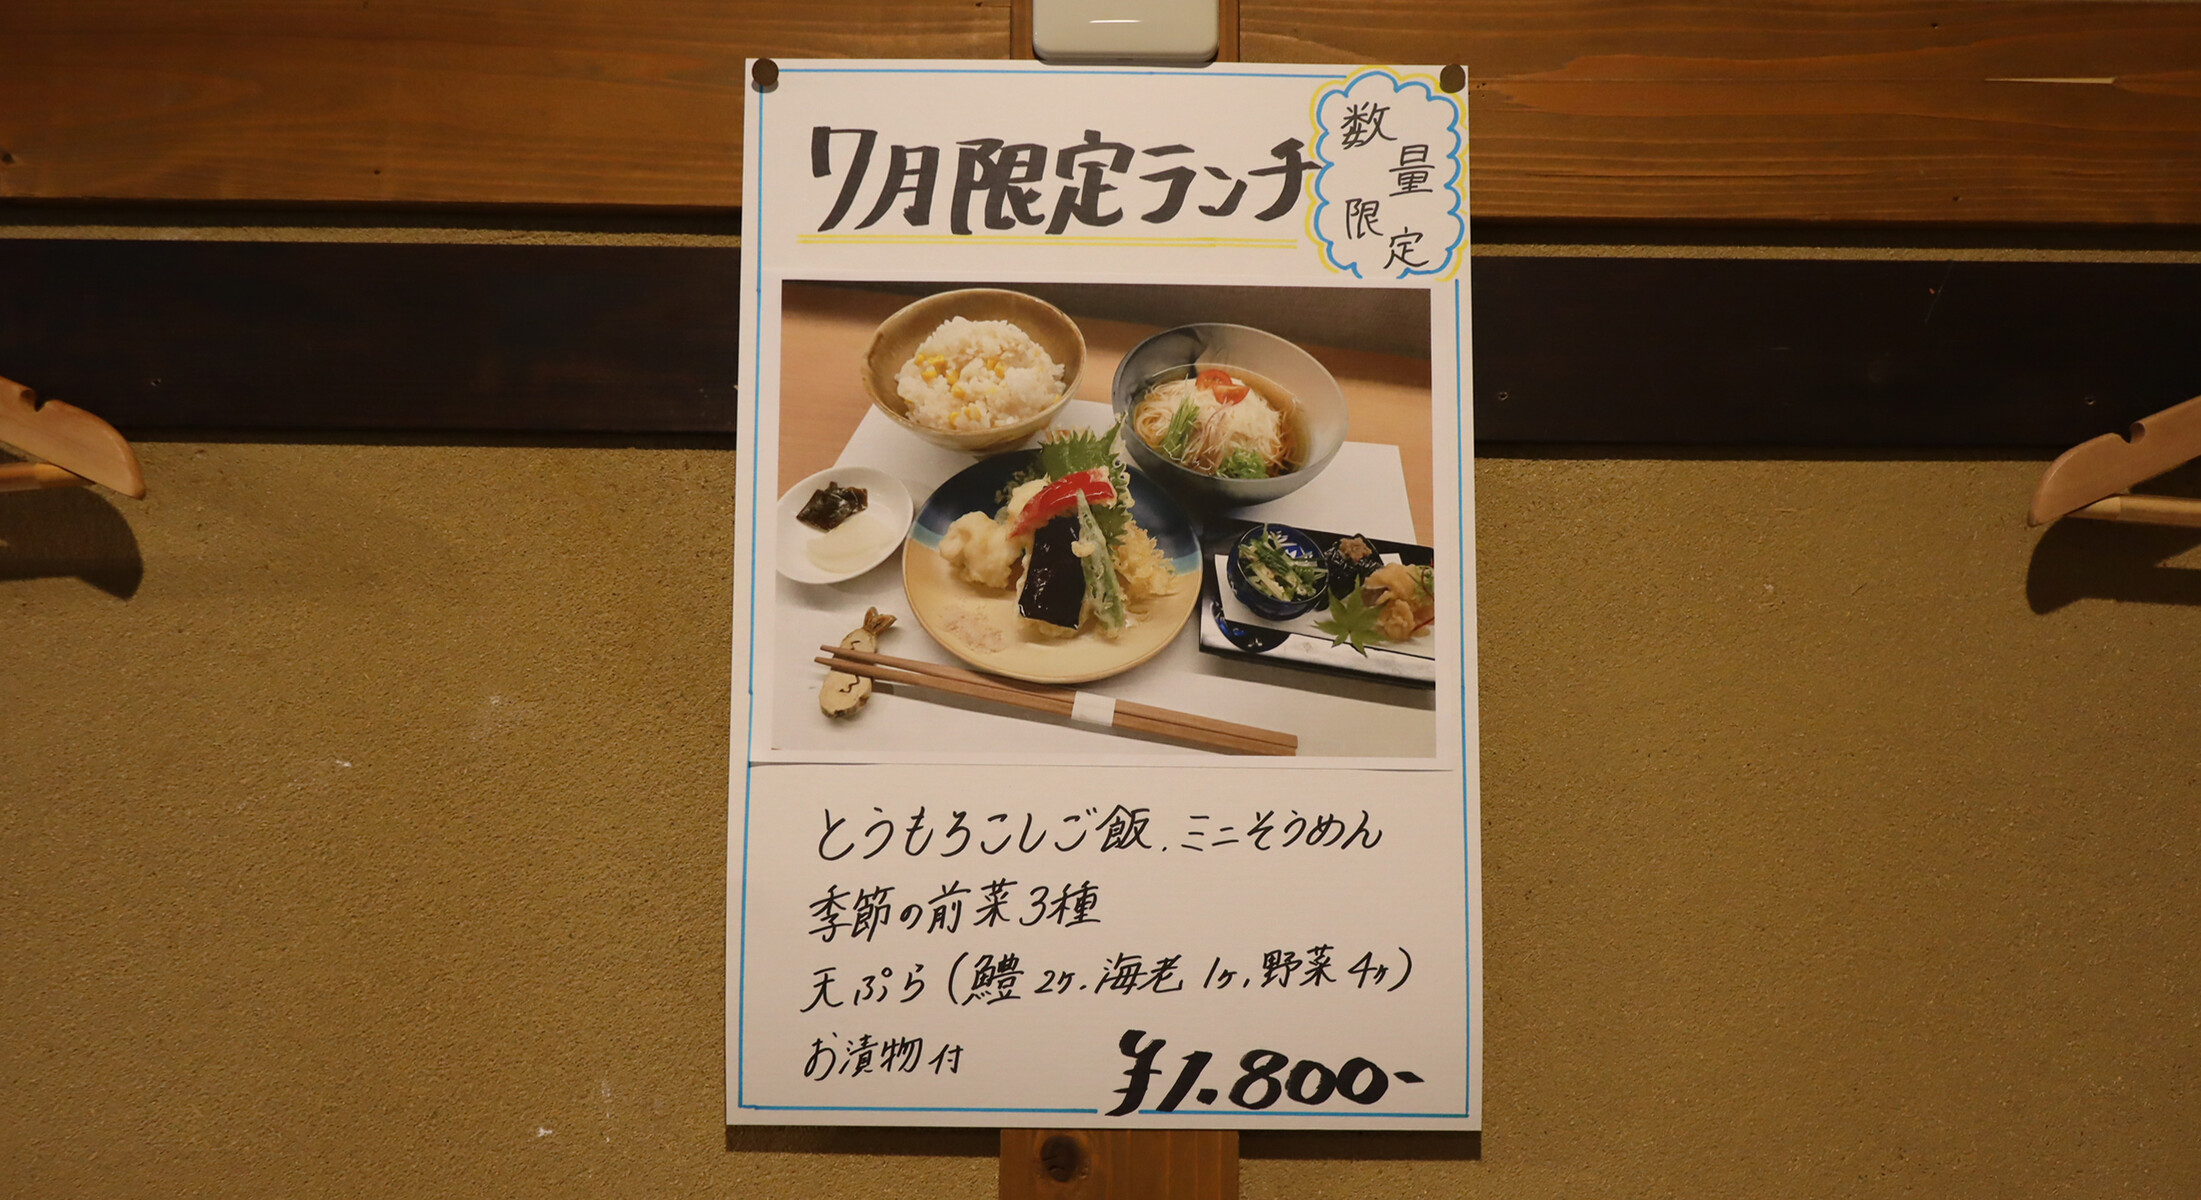 7月限定ランチ
数量限定
とうもろこしご飯、ミニそうめん
季節の前菜3種
天ぷら(鱧2ヶ、海老1ヶ、野菜4ヶ)
お漬物付
¥1.800-